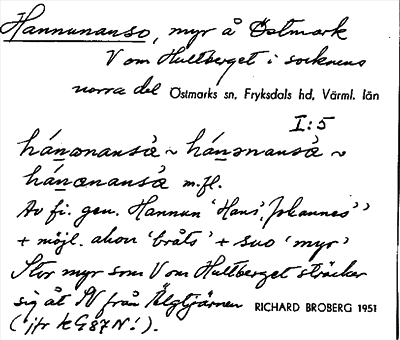 Hannunanso, myr å Östmark
V om Hultberget i socknens
norra del Östmarks sn, Fryksdals hd, Värml. län
I:5
hánænanså̀ ~ hánɘnanså̀ ~
hánænanså̀ m.fl.
Av fi. gen. Hannun 'Hans, Johannes'
+ möjl. ahon 'bråts' + suo 'myr'
Stor myr som V om Hultberget sträcker
sig åt SV från Älgtjärnen RICHARD BROBERG 1951
(jfr kG87N!).